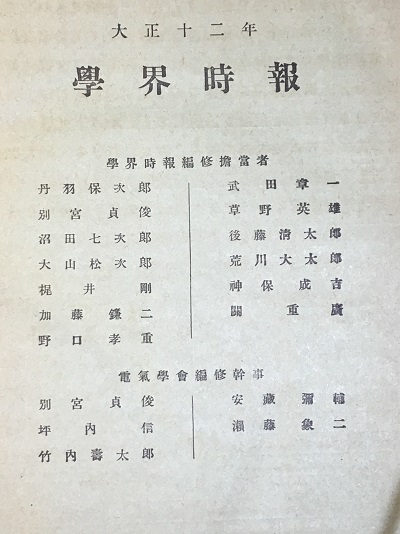 大正十二年
學界時報
學界時報編修擔當者
丹羽保次郎
別宮貞俊
沼田七次郎
大山松次郎
梶井剛
加藤鎌二
野口孝重
武田章一
草野英雄
後藤淸太郎
荒川大太郎
神保成吉
關重廣
電氣學會編修幹事
別宮貞俊
坪內信
竹內壽太郎
安藏彌輔
瀨藤象二